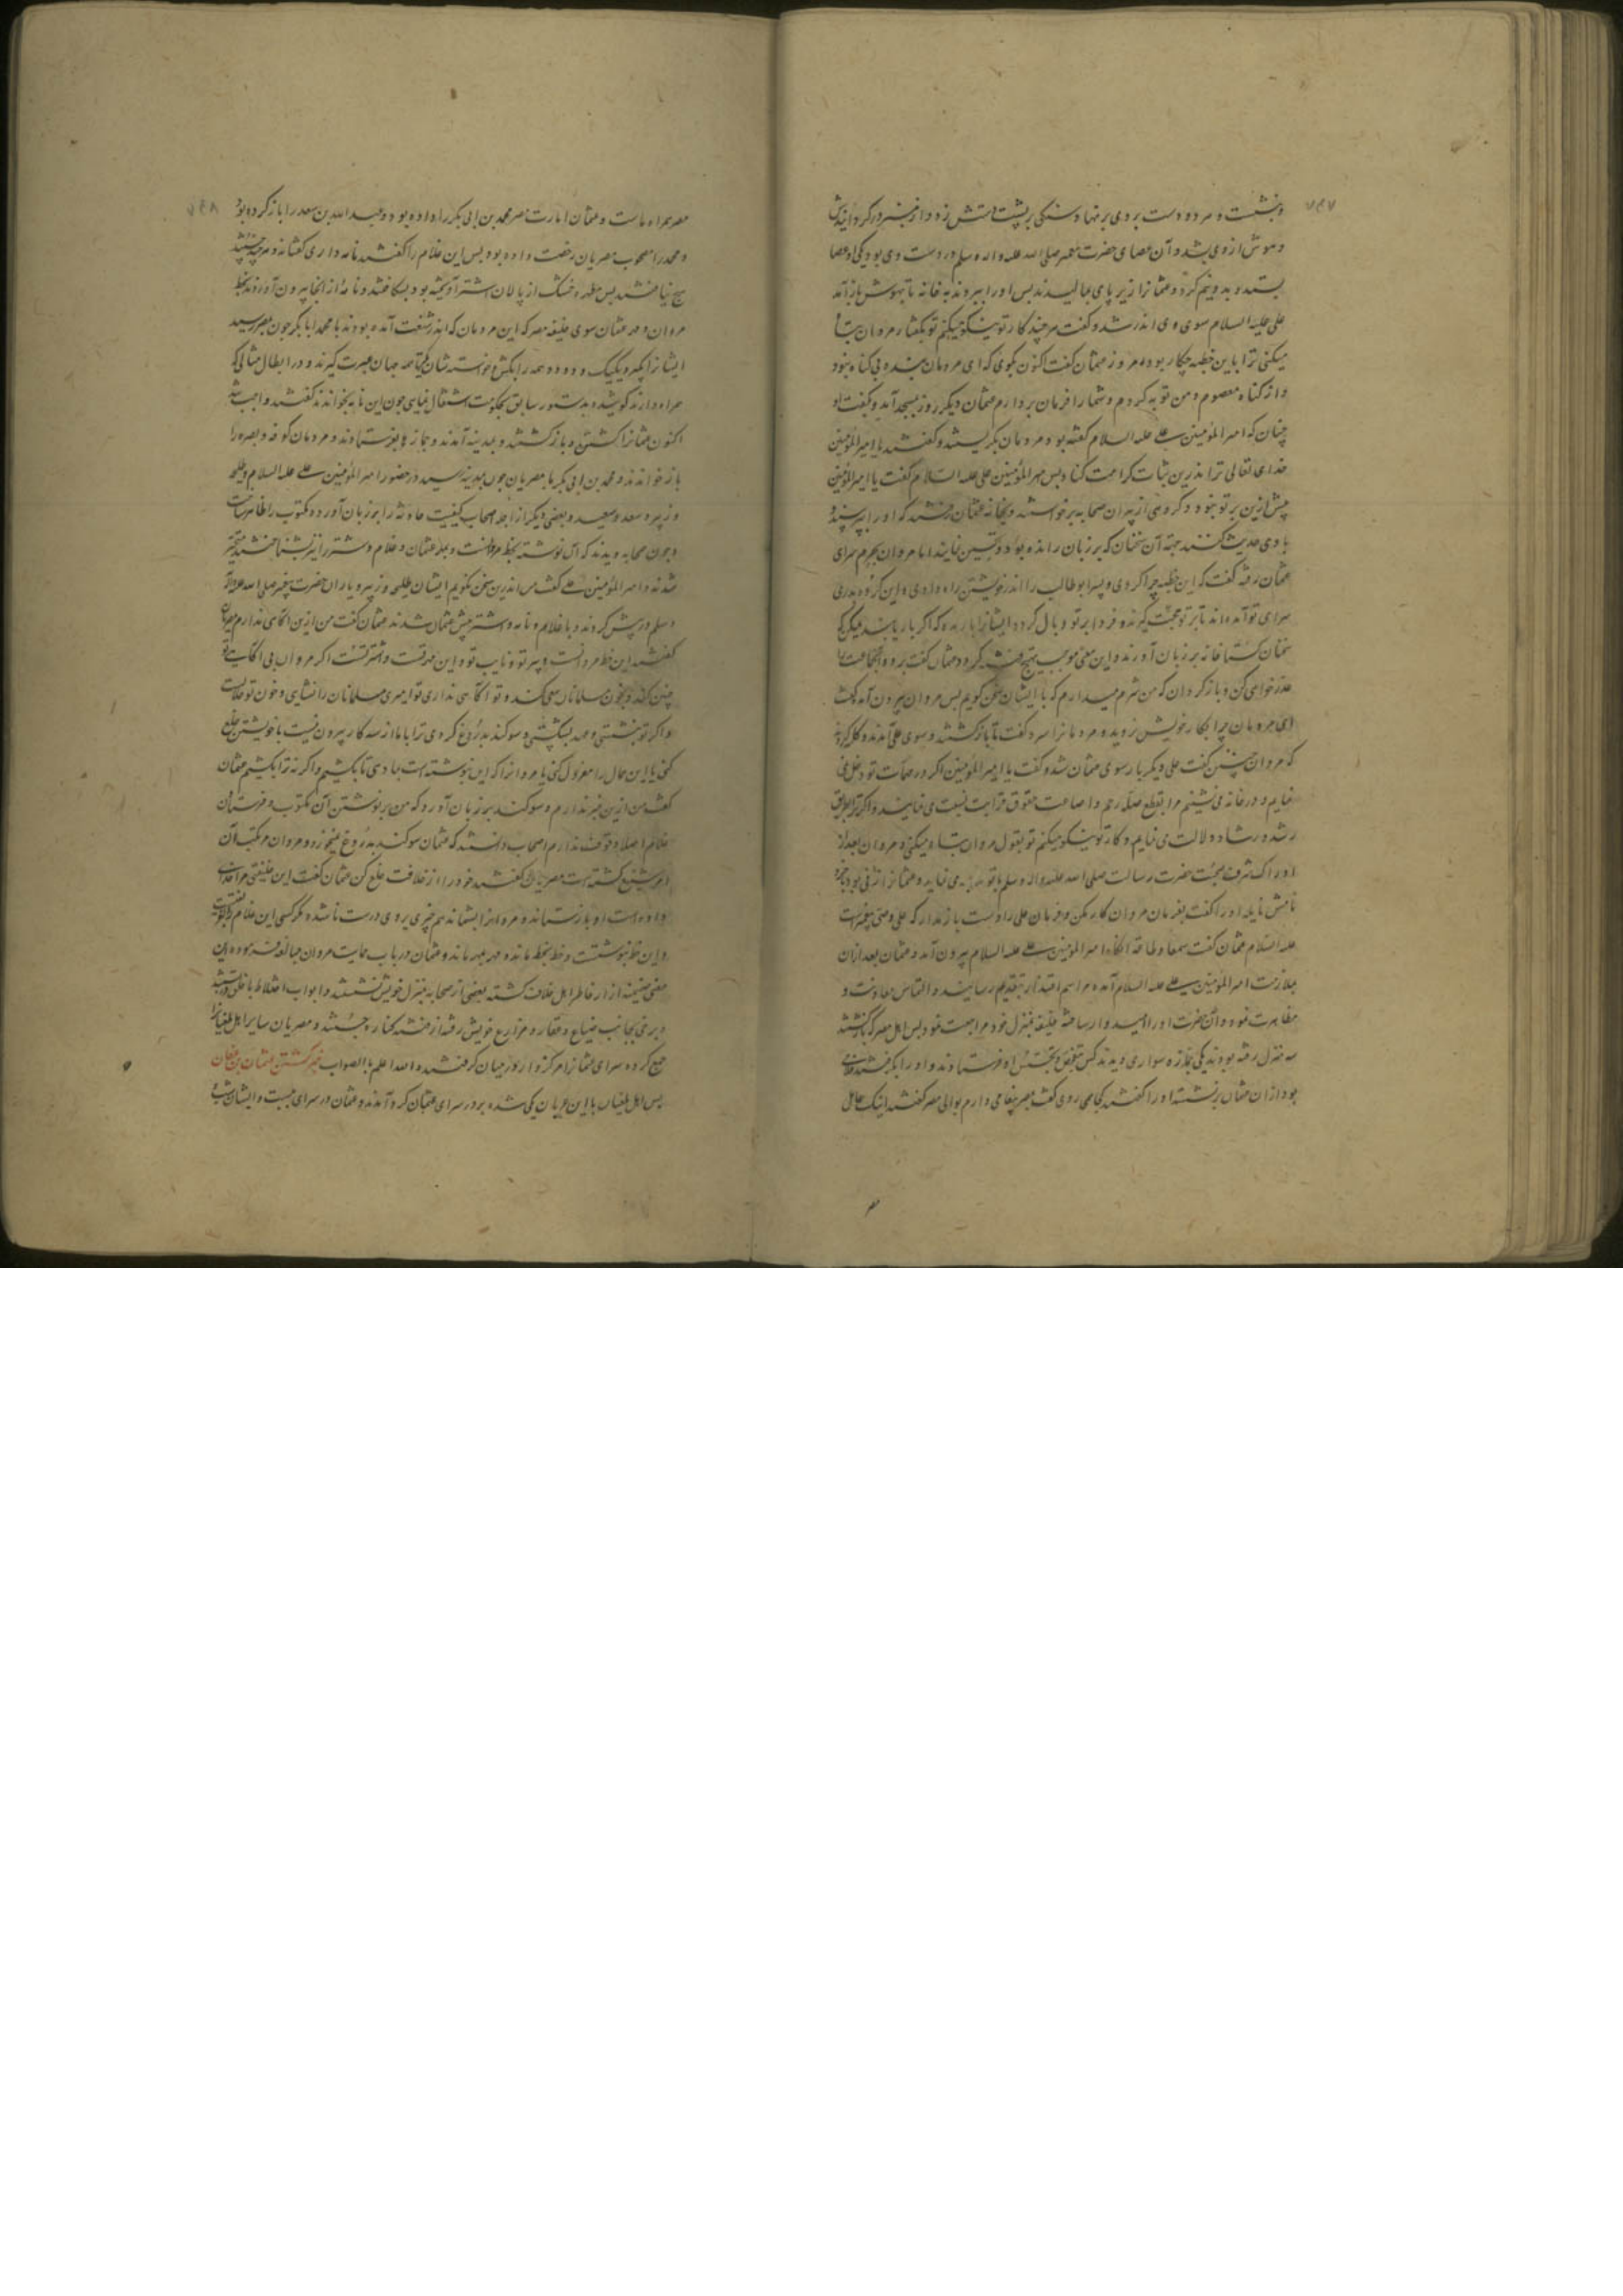 ۷۶۷
و بنشست و هر دو دست بروی بر نهاد و سنگی بر پشت دستش زد و از منبر در گردانیدش
و هوش از وی بشد و آن عصای حضرت پیغمبر صلی الله علیه و اله وسلم در دست وی بود یکی آن عصا
بستد و بدو نیم کرد و عثمانرا زیر پای بمالیدند پس او را ببردند به خانه تا بهوش باز آمد
علی علیه السلام سوی وی اندر شد و گفت هر چند کار تو نیکو میکنم تو بگفتار مروان تباه
میکنی ترا باین خطبه چکار بود امروز عثمان گفت اکنون بگوی که ای مردمان بنده بی گناه نبود
و از گناه معصوم و من توبه کردم و شما را فرمان بردارم عثمان دیگر روز بمسجد آمد و بگفت
چنان که امیر المؤمنین علی علیه السلام گفته بود مردمان بگریستند و گفتند یا امیر المؤمنین
خدای تعالی ترا اندرین ثبات کرامت کناد پس امیر المؤمنین علی علیه السلام گفت یا امیر المؤمنین
پیش ازین بر تو نبود و گروهی از پیران صحابه برخواستند و بخانه عثمان رفتند که او را بپرسند و
با وی حدیث کنند جهة آن سخنان که بر زبان رانده بود و تحسین نمایند اما مروان بحرم سرای
عثمان رفته گفت که این خطبه چرا کردی و پسر ابوطالب را اندر خویشتن راه دادی و این گروه بدر
سرای تو آمده اند تا بر تو حجت گیرند و فردا بر تو وبال گردد ایشانرا بار مده که اگر بار یابند
سخنان گستاخانه بر زبان آورند و این معنی موجب تهییج فتنه گردد عثمان گفت برو و آنجماعت را
عذرخواهی کن و باز گردان که من شرم میدارم که با ایشان سخن گویم پس مروان بیرون آمد گفت
ای مردمان چرا بکار خویش نروید و مردمانرا سرد گفت تا باز گشتند و سوی علی آمدند و گله کردند
که مروان چنین گفت علی دیگر بار سوی عثمان شد و گفت یا امیر المؤمنین اگر در مهمات تو دخل نمی
نمایم و در خانه می نشینم مرا بقطع صله رحم و اضاعت حقوق قرابت نسبت می نمایند و اگر ترا بطریق
رشد و رشاد دلالت می نمایم و کار تو نیکو میکنم تو بقول مروان تباه میکنی و مروان بعد از
ادراک شرف صحبت حضرت رسالت صلی الله علیه و اله وسلم با تو می نماید و عثمانرا زنی بود
نامش نایله او را گفت بفرمان مروان کار مکن و فرمان علی را دست باز مدار که علی وصی پیغمبرست
علیه السلام عثمان گفت سمعا و طاعة انگاه امیر المؤمنین علی علیه السلام بیرون آمد و عثمان بعد ازان
بملازمت امیر المؤمنین علی علیه السلام آمده مراسم اعتذار بتقدیم رسانید و التماس معاونت و
مظاهرت نمود و آن حضرت او را امیدوار ساخته خلیفه بمنزل خود مراجعت نمود پس اهل مصر که بازگشتند
سه منزل رفته بودند یکی جمازه سواری دیدند کس بتفحص و تجسس او فرستادند و او را بگرفتند غلامی
بود ازان عثمان بر نشسته او را گفتند کجا می روی گفت بمصر پیغامی دارم بوالی مصر گفتند اینک عامل
مصر
۷۶۸
مصر همراه ماست و عثمان امارت مصر محمد بن ابی بکر را داده بود و عبد الله بن سعد را باز کرده بود
و محمد را مصحوب مصریان رخصت داده بود پس این غلام را گفتند نامه داری گفتا نه و هر چند بجستند
هیچ نیافتند پس مطهره خشک از پالان اشتر آویخته بود بشکافتند و نامه از آنجا بیرون آوردند بخط
مروان و مهر عثمان سوی خلیفه مصر که این مردمان که اندر شغب آمده بودند با محمد ابا بکر چون بمصر رسید
ایشانرا بگیر و یکیک و دو دو همه را بکش تا همه جهان عبرت گیرند و در ابطال مثالی که
همراه دارند کوشیده بدستور سابق بحکومت اشتغال نمای چون این نامه بخواندند گفتند واجب شد
اکنون عثمانرا کشتن و باز گشتند و بمدینه آمدند و جمازها بفرستادند و مردمان کوفه و بصره را
باز خواندند و محمد بن ابی بکر با مصریان چون بمدینه رسید در حضور امیر المؤمنین علی علیه السلام و طلحه
و زبیر و سعد و سعید و بعضی دیگر از اجله اصحاب کیفیت حادثه را بر زبان آورده مکتوب را ظاهر ساخت
و چون صحابه دیدند که آن نوشته بخط مروانست و بمهر عثمان و غلام و شتر را نیز بشناختند متحیر
شدند و امیر المؤمنین علی گفت من اندرین سخن نگویم ایشان طلحه و زبیر و یاران حضرت پیغمبر صلی الله علیه و آله
وسلم در پیش کردند و با غلام و نامه و اشتر پیش عثمان شدند عثمان گفت من ازین آگاهی ندارم
گفتند این خط مروانست دبیر تو و نایب تو و این مهر تست و اشتر تست اگر مروان بی آگاهی تو
چنین کند و بخون مسلمانان سعی کند و تو آگاهی نداری تو امیری مسلمانان را نشایی و خون تو حلالست
و اگر تو نبشتی و عهد بشکستی و سوگند بدروغ کردی ترا با ما از سه کار بیرون نیست یا خویشتن خلع
کنی یا این عمال را معزول کنی یا مروانرا که این نوشته است بما دهی تا بکشیم و اگر نه ترا بکشیم عثمان
گفت من ازین خبر ندارم و سوگند بر زبان آورد که من بر نوشتن آن مکتوب و فرستادن
غلام اصلا وقوف ندارم اصحاب دانستند که عثمان سوگند بدروغ نمیخورد و مروان مرتکب آن
امر شنیع گشته است مصریان گفتند خود را از خلافت خلع کن عثمان گفت این خلیفتی مرا خدای
داده است او باز ستاند و مروانرا بشما ندهم چیزی بروی درست ناشده مگر کسی این غلام بفریفت
و این خط نبوشتست و خط بخط ماند و مهر بمهر ماند و عثمان در باب حمایت مروان مبالغه فرموده این
معنی ضمیمه ازار خاطر اهل خلاف گشته بعضی از صحابه بمنزل خویش نشستند و ابواب اختلاط با خلق در بستند
و برخی بجانب ضیاع و عقار و مزارع خویش رفته از فتنه کناره جستند و مصریان سایر اهل طغیانرا
جمع کرده سرای عثمانرا مرکز وار در میان گرفتند و الله اعلم بالصواب خبر گشتن عثمان بن عفان
پس اهل طغیان با این عریان یکی شده بر در سرای عثمان گرد آمدند و عثمان در سرای ببست و ایشان